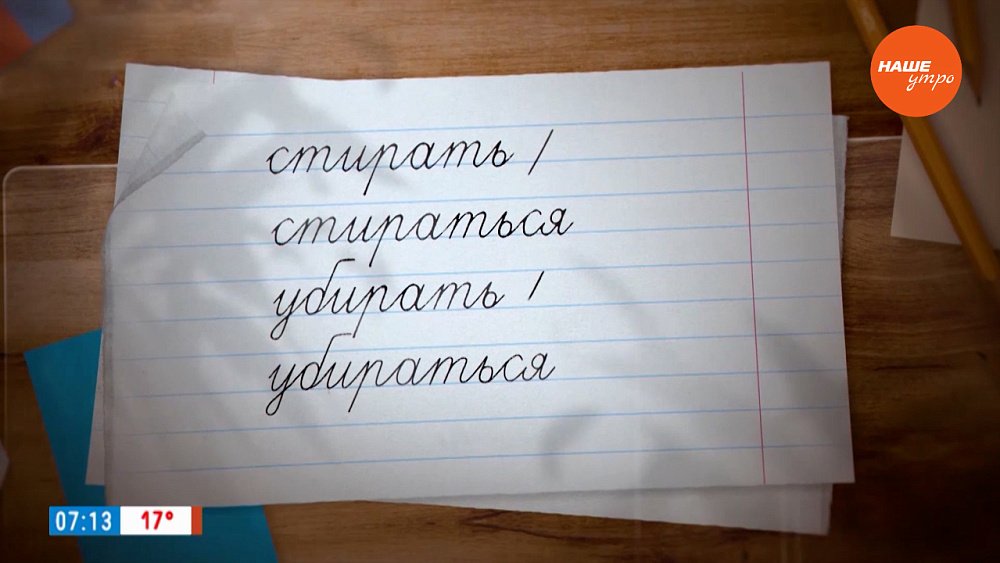 НАШЕ
утро
стирать /
стираться
убирать /
убираться
07:13 17°